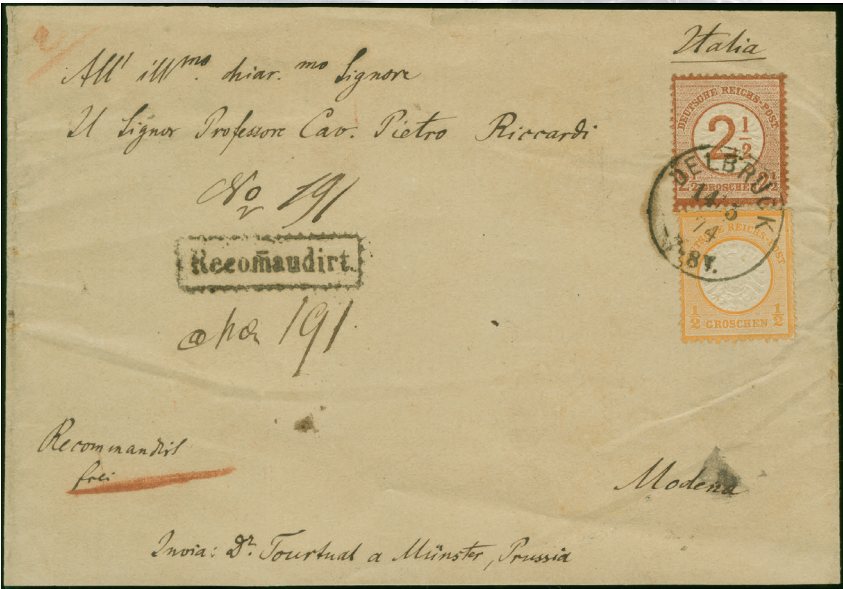 Italia
All' ill^mo. chiar.^mo Signore
Il Signor Professore Cav. Pietro Riccardi
No 191
Recom̄andirt.
191
DEUTSCHE REICHS-POST
2 1/2
2 1/2 GROSCHEN 2 1/2
DELBRÜCK
14 3
74
7-8V.
REICHS-POST
1/2 GROSCHEN 1/2
Recommandirt
frei
Modena
Invia: Dr. Tourtual a Münster, Prussia